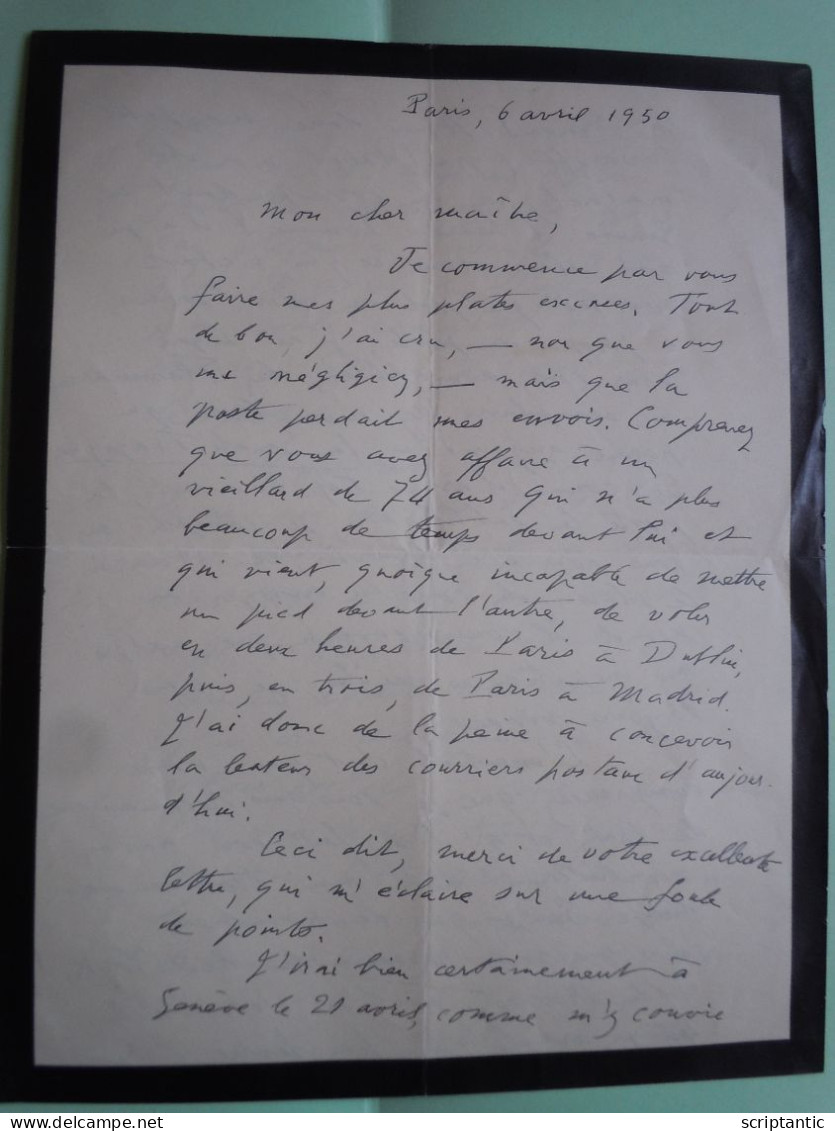 Paris, 6 avril 1950
Mon cher maître,
Je commence par vous
faire mes plus plates excuses. Tout
de bon, j'ai cru, — non que vous
me négligiez, — mais que la
poste perdait mes envois. Comprenez
que vous avez affaire à un
vieillard de 74 ans qui n'a plus
beaucoup de temps devant lui et
qui vient, quoique incapable de mettre
un pied devant l'autre, de voler
en deux heures de Paris à Dublin,
puis, en trois, de Paris à Madrid.
J'ai donc de la peine à concevoir
la lenteur des courriers postaux d'aujour-
d'hui.
Ceci dit, merci de votre excellente
lettre, qui m'éclaire sur une foule
de points.
J'irai bien certainement à
Genève le 21 avril, comme m'y convie
scriptantic